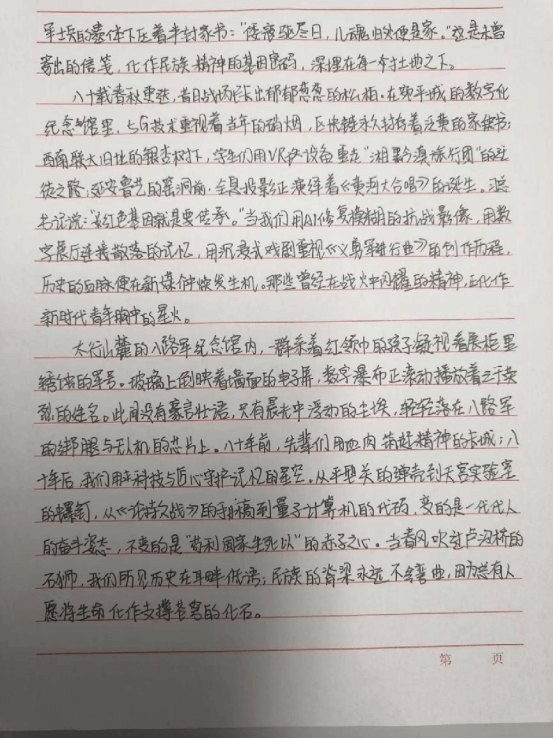 军士兵的遗体下压着半封家书："倭寇驱尽日，儿魂归处便是家。"这是未曾
寄出的信笺，化作民族精神的基因密码，深埋在每一寸土地之下。
八十载春秋更迭，昔日战场已长出郁郁葱葱的松柏。在观平城的数字化
纪念馆里，5G技术重现着当年的硝烟，区块链永久封存着泛黄的家书；
西南联大旧址的银杏树下，学生们用VR设备重走"湘黔滇旅行团"的迁
徙之路；延安鲁艺的窑洞前，全息投影正演绎着《黄河大合唱》的诞生。
书记说："红色基因就是要传承。"当我们用AI修复模糊的抗战影像，用数
字展厅连接散落的记忆，用沉浸式戏剧重现《义勇军进行曲》的创作历程，
历史的血脉便在新媒体中焕发生机。那些曾经在战火中闪耀的精神，正化作
新时代青年胸中的星火。
太行山麓的八路军纪念馆内，一群系着红领巾的孩子凝视着展柜里
锈蚀的军号。玻璃上倒映着墙面的电子屏，数字瀑布正滚动播放着三千英
烈的姓名。此间没有豪言壮语，只有晨光中浮动的尘埃，轻轻落在八路军
的绑腿与无人机的芯片上。八十年前，先辈们用血肉筑起精神的长城；八
十年后，我们用科技与匠心守护记忆的星空。从平型关的弹壳到天宫实验室
的螺钉，从《论持久战》的手稿到量子计算机的代码，变的是一代代人
的奋斗姿态，不变的是"苟利国家生死以"的赤子之心。当春风吹过卢沟桥的
石狮，我们听见历史在耳畔低语：民族的脊梁永远不会弯曲，因为总有人
愿将生命化作支撑苍穹的化石。
第 页